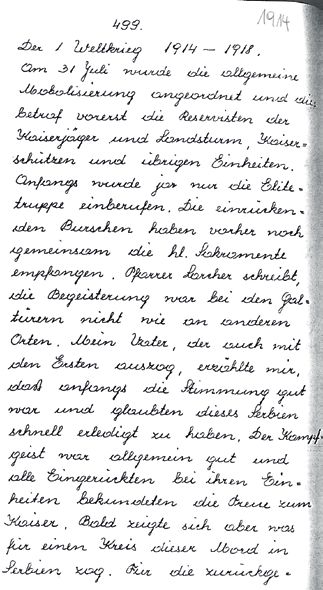 499.
1914
Der 1 Weltkrieg 1914 – 1918.
Am 31 Juli wurde die allgemeine
Mobolisierung angeordnet und die
betraf vorerst die Reservisten der
Kaiserjäger und Landsturm, Kaiser=
schützen und übrigen Einheiten.
Anfangs wurde ja nur die Elite=
truppe einberufen. Die einrücken=
den Burschen haben vorher noch
gemeinsam die hl. Sakramente
empfangen. Pfarrer Lorcher schreibt,
die Begeisterung war bei den Gal=
türern nicht wie an anderen
Orten. Mein Vater, der auch mit
den Ersten auszog, erzählte mir,
daß anfangs die Stimmung gut
war und glaubten dieses Serbien
schnell erledigt zu haben. Der Kampf=
geist war allgemein gut und
alle Eingerückten bei ihren Ein=
heiten bekundeten die Treue zum
Kaiser. Bald zeigte sich aber was
für einen Kreis dieser Mord in
Serbien zog. Für die zurückge=